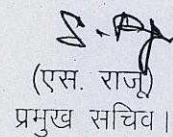 (एस. राजू)
प्रमुख सचिव।